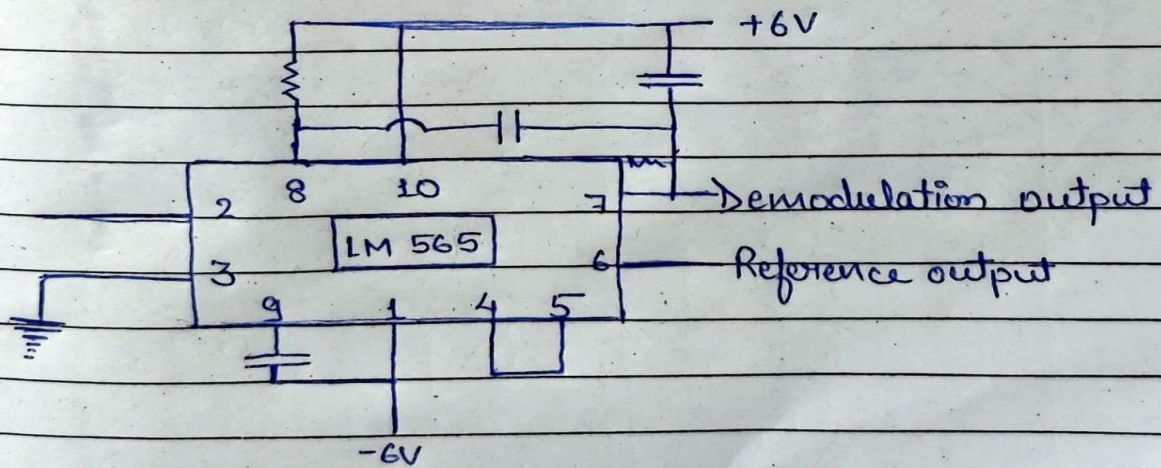 +6V
8 10
2 7 Demodulation output
LM 565
3 6 Reference output
9 1 4 5
-6V